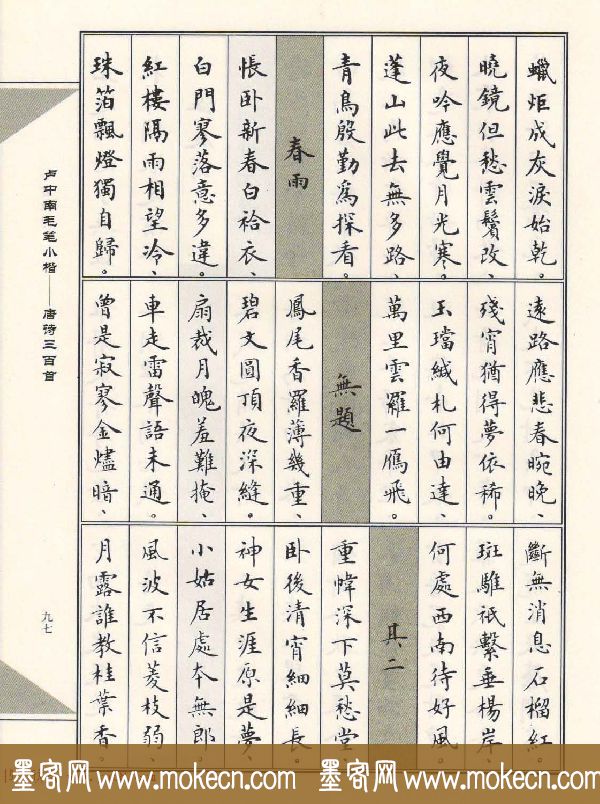 蠟炬成灰淚始乾。
曉鏡但愁雲鬢改、
夜吟應覺月光寒。
蓬山此去無多路、
青鳥殷勤為探看。
春雨
悵卧新春白袷衣、
白門寥落意多違。
紅樓隔雨相望冷、
珠箔飄燈獨自歸。
遠路應悲春晼晚、
殘宵猶得夢依稀。
玉璫緘札何由達、
萬里雲羅一鴈飛。
無題
鳳尾香羅薄幾重、
碧文圓頂夜深縫。
扇裁月魄羞難掩、
車走雷聲語未通。
曾是寂寥金燼暗、
斷無消息石榴紅。
斑騅祇繫垂楊岸、
何處西南待好風。
其二
重幃深下莫愁堂、
卧後清宵細細長。
神女生涯原是夢、
小姑居處本無郎。
風波不信菱枝弱、
月露誰教桂葉香。
卢中南毛笔小楷——唐诗三百首
九七
墨客网 www.mokecn.com 墨客网 www.mokecn.com